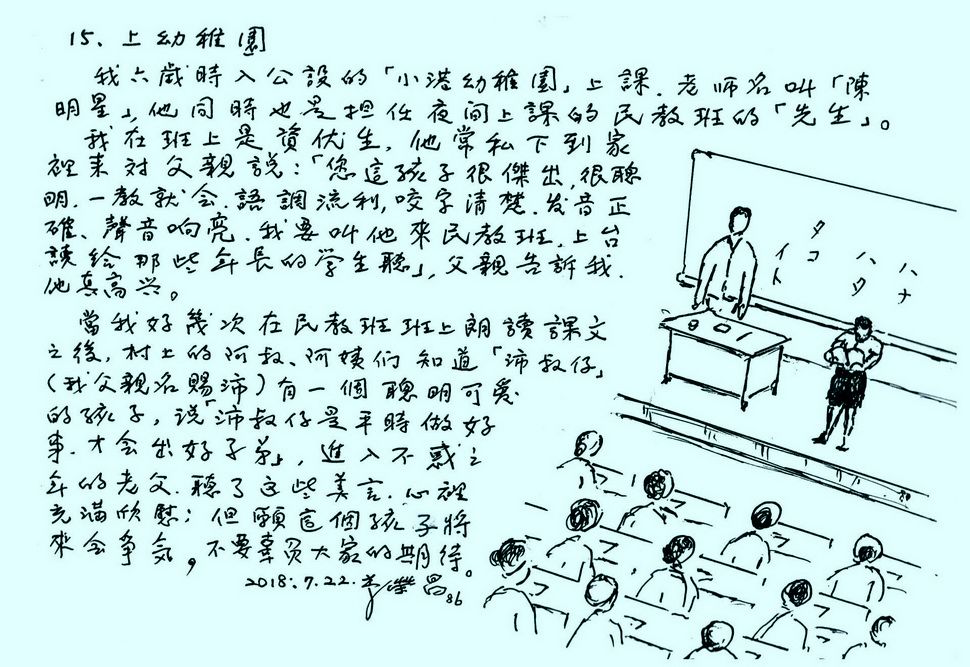 15、上幼稚園
我六歲時入公設的「小港幼稚園」上課．老师名叫「陳
明星」，他同時也是担任夜间上課的民教班的「先生」。
我在班上是資优生，他常私下到家
裡来对父親説：「您這孩子很傑出，很聰
明．一教就会．語調流利，咬字清楚．发音正
確、聲音响亮．我要叫他來民教班，上台
讀给那些年長的学生聽」，父親告訴我．
他真高兴。
當我好幾次在民教班班上朗讀課文
之後，村上的阿叔、阿姨们知道「沛叔仔」
（我父親名賜沛）有一個聰明可爱
的孩子，说「沛叔仔是平時做好
事．才会出好子弟」，進入不惑之
年的老父．聽了这些美言．心裡
充满欣慰；但願這個孩子將
來会爭気，不要辜负大家的期待。
2018.7.22.
榮昌86
タコ
イト
ハタ
ハナ